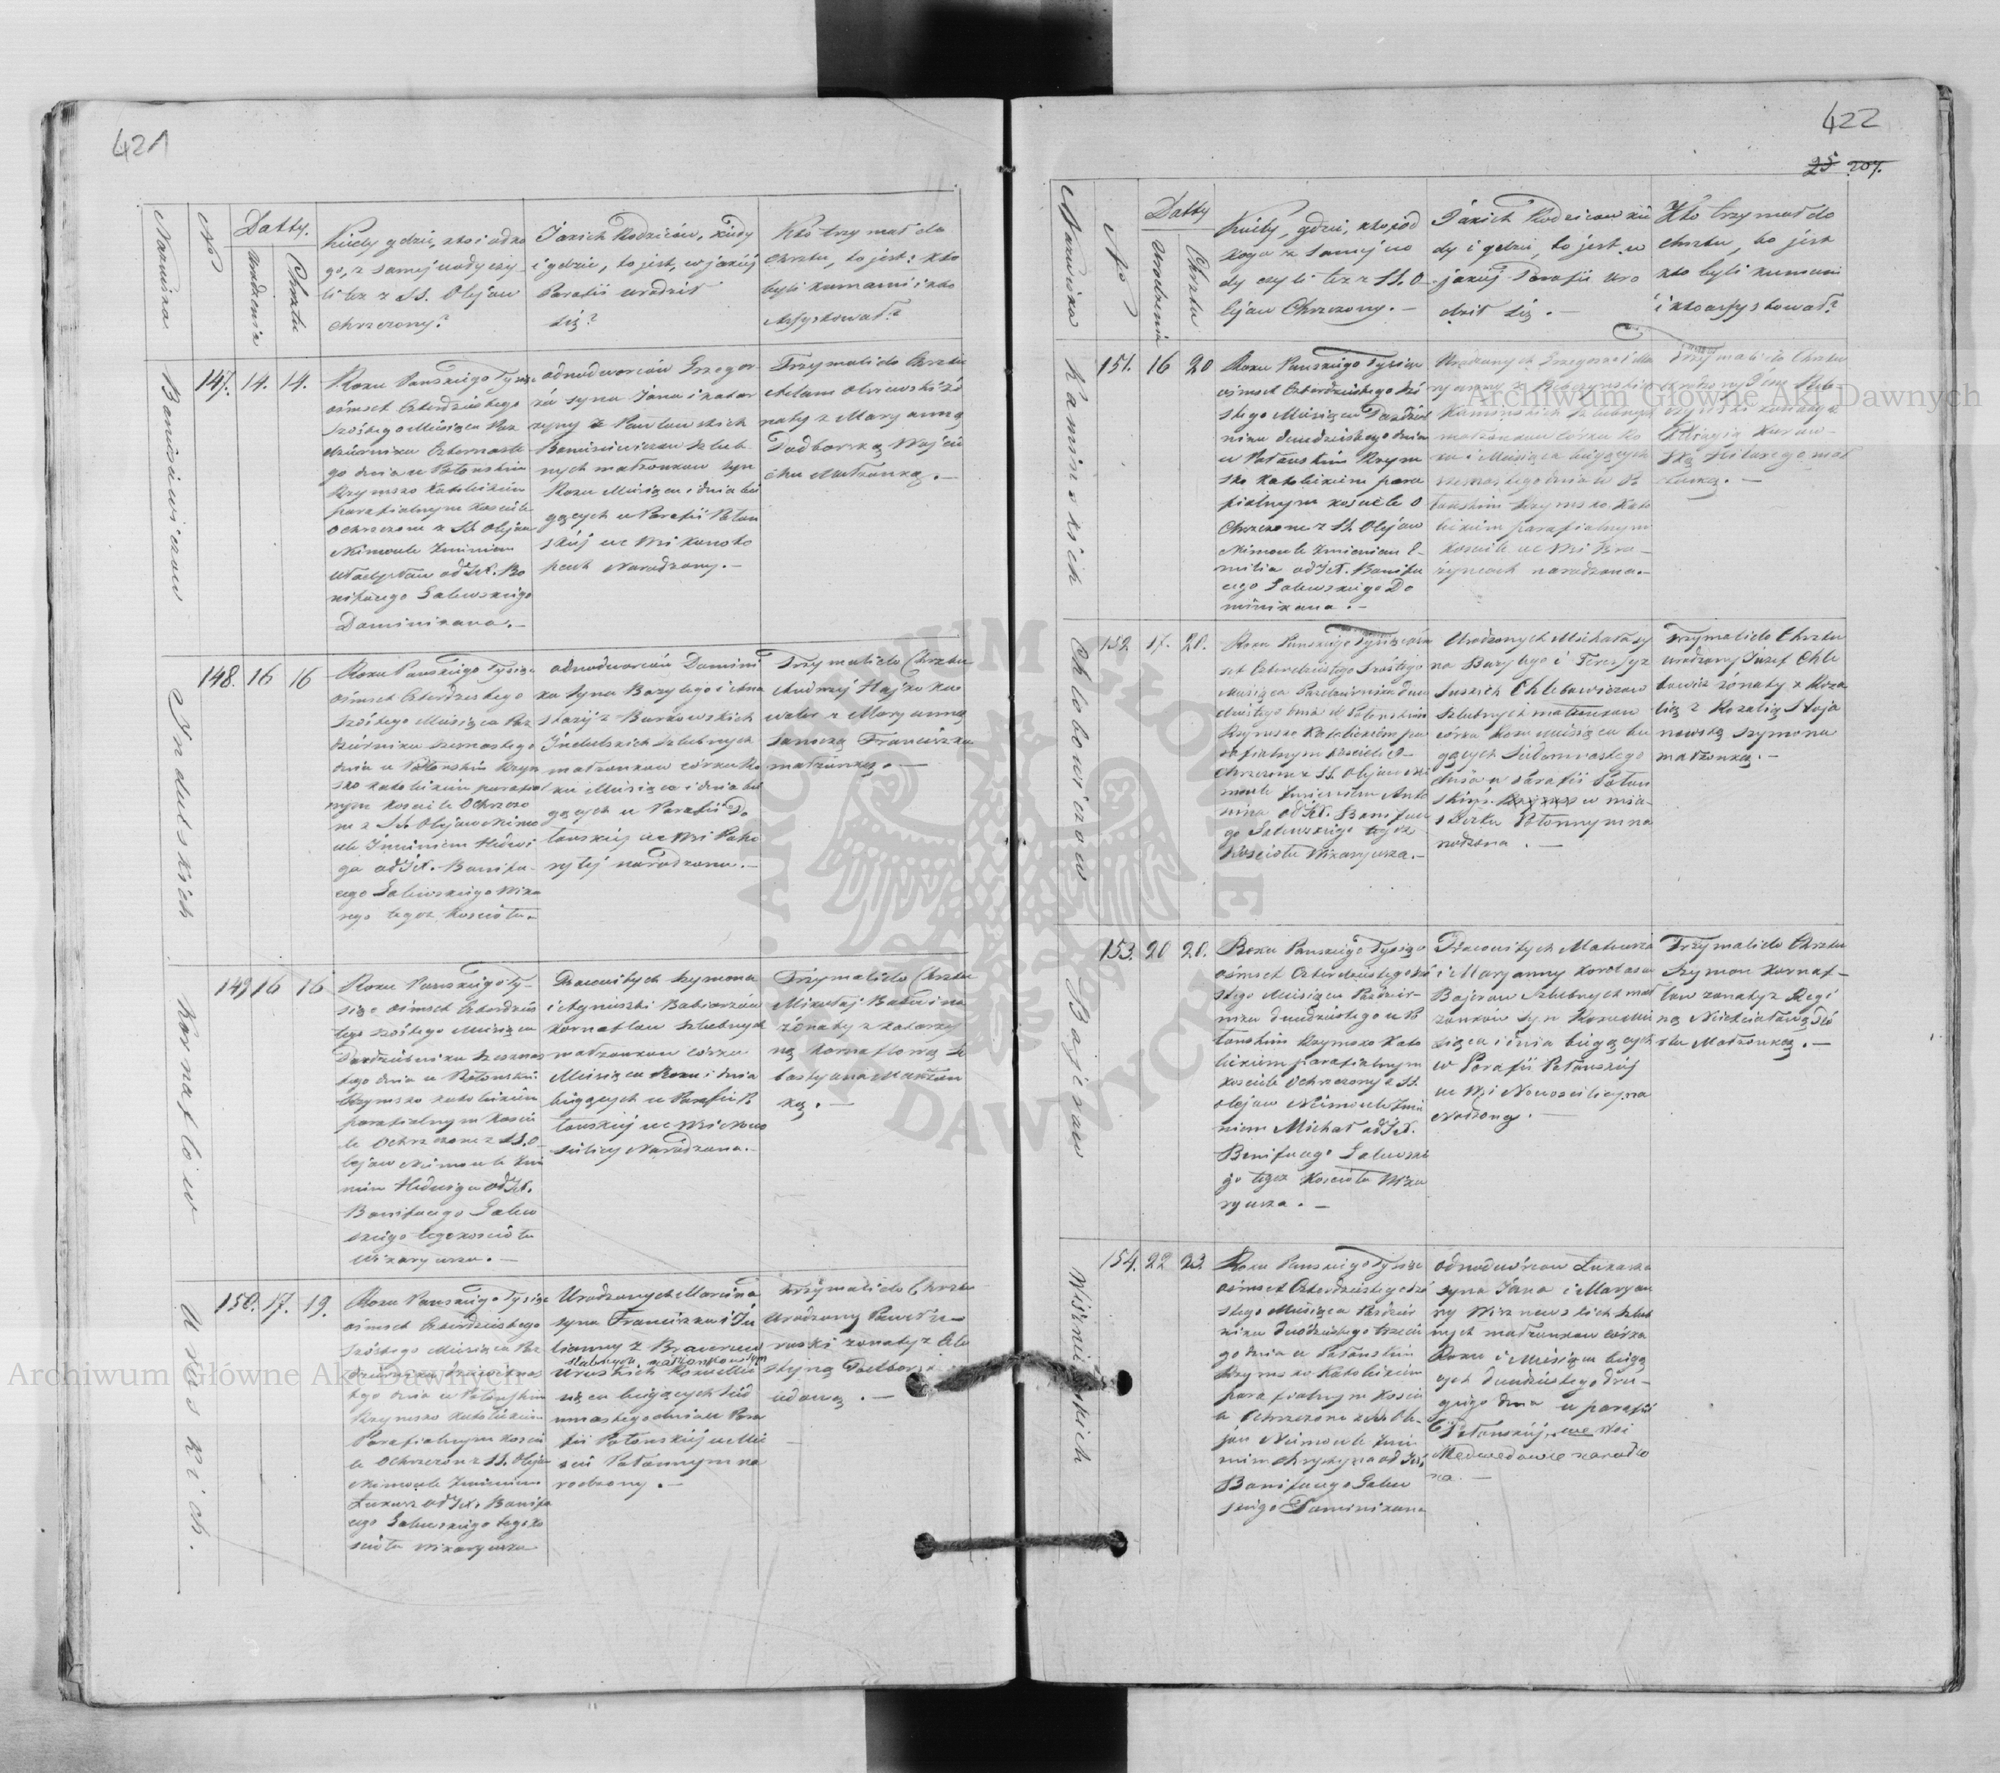 421
Nazwiska
No
Datty.
Urodzenia
Chrztu
Kiedy gdzie, kto i od ko
go, z samej wody czy
li też z SS. Olejów
chrzczony?
Jakich Rodziców, kiedy
i gdzie, to jest, w jakiej
Parafii urodził
się?
Kto trzymał do
Chrztu, to jest: kto
byli kumami i kto
Assystował?
147. 14. 14.
Roku Pańskiego Tysiąc
ośmset Czterdziestego
szóstego Miesiąca Paz
dziernika Czternaste
go dnia w Połońskim
Rzymsko Katolickim
parafialnym Kościele
Ochrzczone z SS. Olejów
Niemowle Imieniem
od JX. Bo
nifacego Galewskiego
Dominikana.
odnodworców Grzegor
za syna Jana i Katar
zyny z Pawłowskich
Boniewiczow szlub
nych małżonkow syn
Roku Miesiąca i dnia bie
żących w Parafii Połon
skiej we Wsi
Narodzony.
Trzymali do Chrztu
Adam
naty z Maryanną
Podborską Wojcie
cha Małżonką.
148. 16 16
Indulskich
Roku Pańskiego Tysiąc
ośmset Czterdziestego
szóstego Miesiąca Paz
dziernika szesnastego
dnia w Połońskim Rzym
sko katolickim parafial
nym Kościele Ochrzczo
ne z SS. Olejów Niemo
wle Imieniem Hedwi
ga od JX. Bonifa
cego Galewskiego Wika
rego tegoż Kościoła
odnodworców Domini
ka syna Bazylego i Ana
stazyi z Burkowskich
Indulskich szlubnych
małżonkow córka Ro
ku Miesiąca i dnia bie
gących w Parafii Po
łońskiej we Wsi Poho
ryłej narodzona.
Trzymali do Chrztu
Andrzej Hajko ka
waler z Maryanną
Franciszka
małżonką.
149 16 16
Kornafłow
Roku Pańskiego Ty
siąc ośmset Czterdzies
tego szóstego Miesiąca
Pazdziernika szesnas
tego dnia w Połońskim
Rzymsko katolickim
parafialnym Koscie
le Ochrzczone z SS. O
lejow Niemowle Imie
niem Hedwiga od JX.
Bonifacego Galew
skiego tegoż kościoła
Wikaryusza.
Pracowitych Szymona
i Agnieszki Babiarzów
Kornafłow szlubnych
małżonkow córka
Miesiąca Roku i dnia
bieżących w Parafii Po
łońskiej we Wsi Nowo
sielicy Narodzona.
Trzymali do Chrztu
Mikołaj
żonaty z Katarzy
ną Kornafłową Se
bastyana Małżon
ką.
150. 17. 19.
Uruskich.
Roku Pańskiego Tysiąc
ośmset Czterdziestego
szóstego Miesiąca Paz
dziernika dziewietnas
tego dnia w Połońskim
Rzymsko katolickim
Parafialnym Koscie
le Ochrzczon z SS. Olejów
Niemowle Imieniem
Łukasz od JX. Bonifa
cego Galewskiego tegoż ko
ścioła Wikaryusza
Urodzonych Marcina
syna Franciszka i Ju
lianny z
slubnych małżonkow syn
Uruskich Roku Mie
siąca bieżących sied
mnastego dnia w Para
fii Połońskiej w Mie
ście Połonnym na
rodzony.
Trzymali do Chrztu
Urodzony Paweł U
ruski żonaty z Ce
lestyną
wdową.
422
25 207.
Nazwiska
No
Datty
Urodzenia
Chrztu
Kiedy, gdzie, kto i od
kogo z samej wo
dy czyli też z SS. O
lejów Chrzczony.
Jakich Rodziców kie
dy i gdzie, to jest, w
jakiej Parafii uro
dził się.
Kto trzymał do
chrztu, to jest
kto byli kumami
i kto assystował?
151. 16 20
Kaminskich
Roku Pańskiego Tysiąc
ośmset Czterdziestego szó
stego Miesiąca Pazdzier
nika dwudziestego dnia
w Połońskim Rzym
sko katolickim para
fialnym kościele O
chrzczone z SS. Olejów
Niemowle Imieniem E
milia od JX. Bonifa
cego Galewskiego Do
minikana.
Kaminskich szlubnych
małżonkow córka Ro
ku i Miesiąca bieżących
szesnastego dnia w Po
łońskim Rzymsko Kato
lickim parafialnym
Kosciele we Wsi
narodzona.
Trzymali do Chrztu
Hilarego mał
żonką.
152 17. 20.
Chlebowiczow
Roku Pańskiego Tysiąc ośm
set Czterdziestego szóstego
Miesiąca Pazdziernika dwu
dziestego dnia w Połońskim
Rzymsko Katolickim pa
rafialnym kościele O
chrzczone z SS. Olejow Nie
mowle Imieniem Anto
nina od JX. Boniface
go Galewskiego tegoż
Kościoła Wikaryusza.
Urodzonych Michała sy
na Bazylego i Teressy z
Chlebowiczow
szlubnych małżonkow
córka Roku Miesiąca bie
gących siedemnastego
dnia w Parafii Połon
skiej w mia
steczku Połonnym na
rodzona.
Trzymali do Chrztu
urodzony Józef Chle
bowicz żonaty z Róza
lią z Rozalią Stoja
nowską Szymona
małżonką.
153. 20 20.
Bajerow
Roku Pańskiego Tysiąc
ośmset Czterdziestego szó
stego Miesiąca Paździer
nika dwudziestego w Po
łońskim Rzymsko Kato
lickim parafialnym
kosciele Ochrzczony z SS.
olejow Niemowle Imie
niem Michał od JX.
Bonifacego Galewskie
go tegoż Kościoła Wika
ryusza.
Pracowitych Mateusza
i Maryanny
Bajerow szlubnych mał
żonków syn Roku Mie
siąca i dnia bieżących
w Parafii Połońskiej
we Wsi Nowosielicy na
rodzony.
Trzymali do Chrztu
Szymon Kornaf
łow żonaty z Regi
ną
Małżonką.
154. 22 23
Wiśniewskich
Roku Pańskiego Tysiąc
ośmset Czterdziestego szó
stego Miesiąca Pazdzier
nika dwudziestego trzecie
go dnia w Połońskim
Rzymsko Katolickim
parafialnym Koscie
le Ochrzczona z SS. Ole
jów Niemowle Imie
niem od JX.
Bonifacego Galew
skiego Dominikana
odnodwórcow Łukasza
syna Jana i Maryan
ny Wisznewskich szlub
nych małżonkow córka
Roku i Miesiąca bieżą
cych dwudziestego dru
giego dnia w parafii
Połońskiej, we Wsi
Medwedowie narodzo
na.
Archiwum Główne Akt Dawnych
Archiwum Główne Akt Dawnych
ARCHIWUM GŁÓWNE AKT DAWNYCH